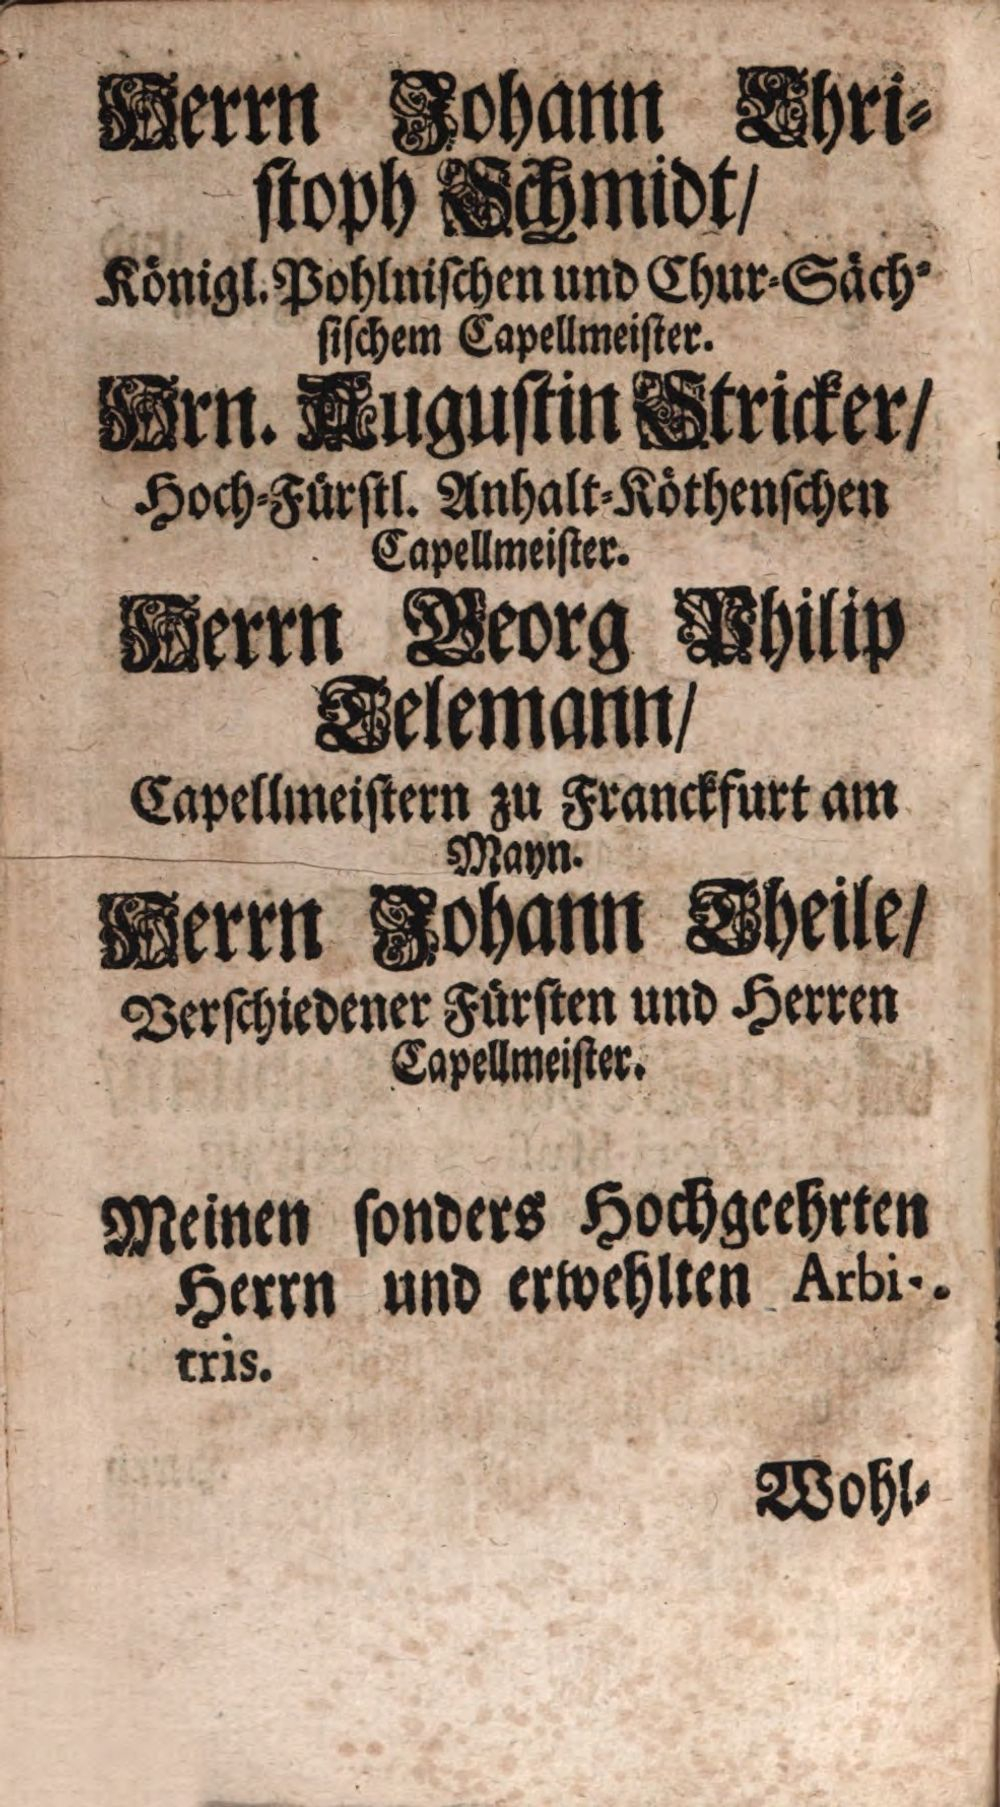 Herrn Johann Chri-
ſtoph Schmidt/
Königl. Pohlniſchen und Chur-Säch-
ſiſchem Capellmeiſter.
Hrn. Auguſtin Stricker/
Hoch-Fürſtl. Anhalt-Köthenſchen
Capellmeiſter.
Herrn Georg Philip
Telemann/
Capellmeiſtern zu Franckfurt am
Mayn.
Herrn Johann Theile/
Verſchiedener Fürſten und Herren
Capellmeiſter.
Meinen ſonders Hochgeehrten
Herrn und erwehlten Arbi-
tris.
Wohl-